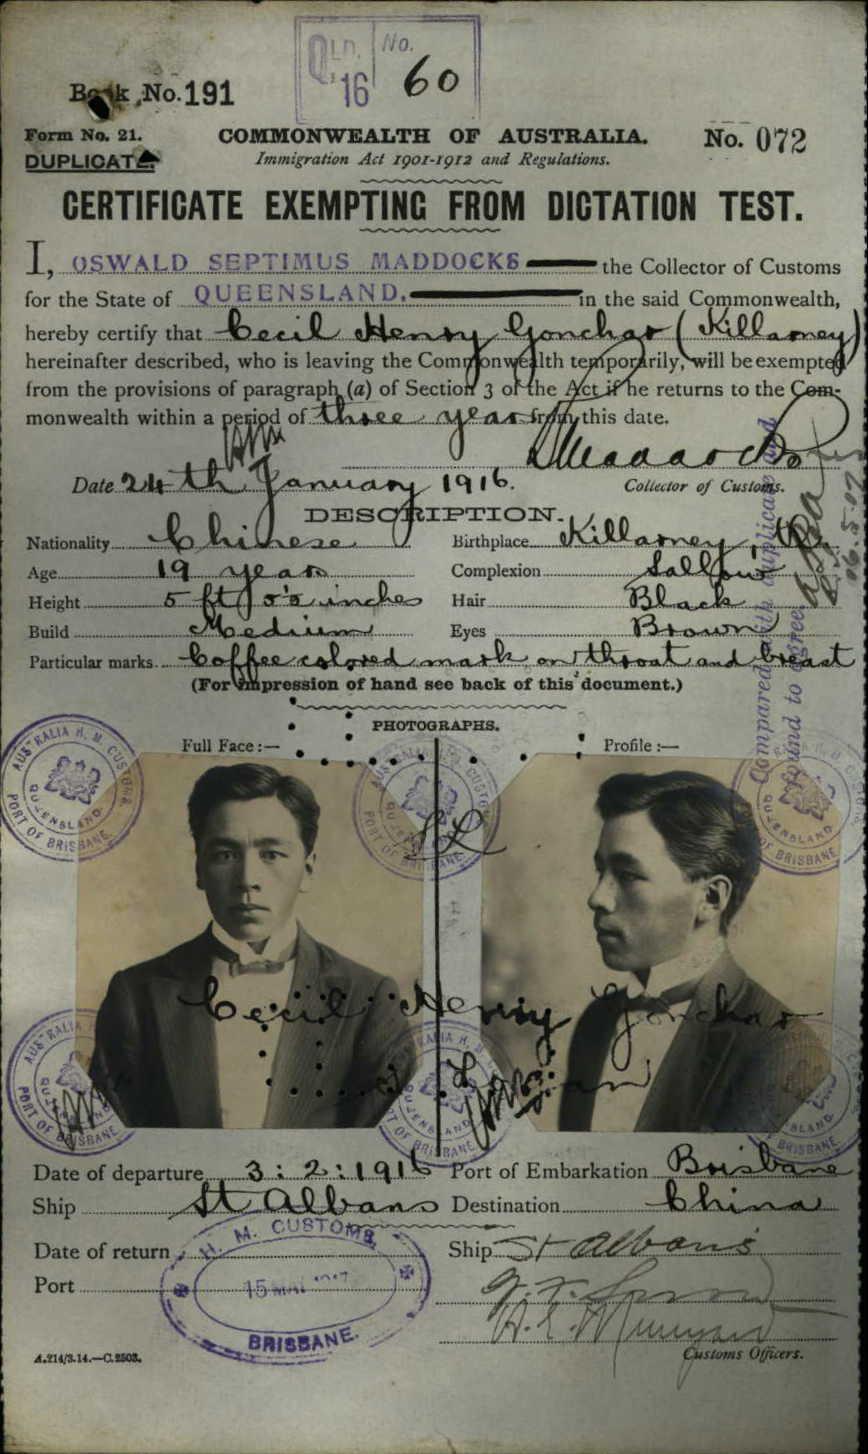 QLD. No.
'16 60
Book No. 191
Form No. 21.
DUPLICATE
COMMONWEALTH OF AUSTRALIA.
Immigration Act 1901-1912 and Regulations.
No. 072
CERTIFICATE EXEMPTING FROM DICTATION TEST.
I, OSWALD SEPTIMUS MADDOCKS the Collector of Customs
for the State of QUEENSLAND. in the said Commonwealth,
hereby certify that Cecil Henry Gonchar (Killarney)
hereinafter described, who is leaving the Commonwealth temporarily, will be exempted
from the provisions of paragraph (a) of Section 3 of the Act if he returns to the Com-
monwealth within a period of three years from this date.
Date 24th January 1916.
Collector of Customs.
DESCRIPTION.
Nationality Chinese Birthplace Killarney,
Age 19 years Complexion Sallow
Height 5 ft inches Hair Black
Build Medium Eyes Brown
Particular marks. Coffee colored mark on throat and breast
(For impression of hand see back of this document.)
Compared with duplicate and
found to agree
PHOTOGRAPHS.
Full Face:— Profile:—
AUSTRALIA H. M. CUSTOMS
QUEENSLAND.
PORT OF BRISBANE.
Cecil Henry Gonchar
Date of departure 3:2:1916 Port of Embarkation Brisbane
Ship St Albans Destination China
Date of return Ship St Albans
Port
H. M. CUSTOMS
BRISBANE.
Customs Officers.
A.214/3.14.—C.2503.